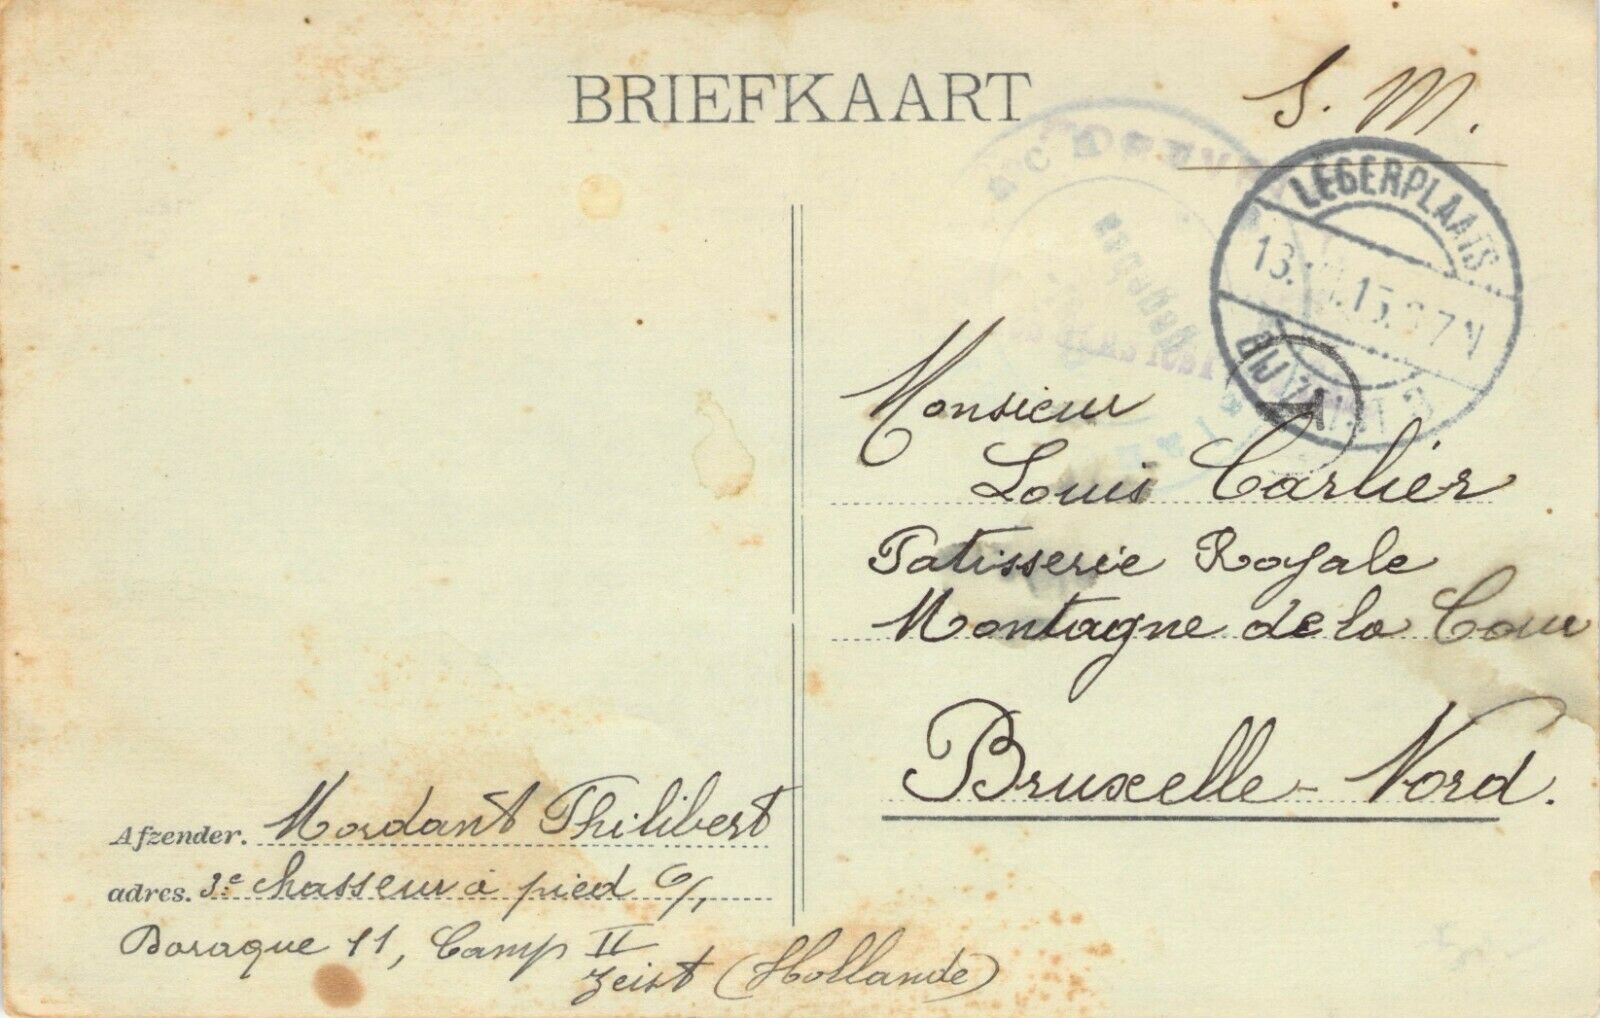 BRIEFKAART
S. M.
LEGERPLAATS
13. .15. 7 N
BIJ ZEIST
Monsieur
Louis Carlier
Patisserie Royale
Montagne de la Cour
Bruxelle-Nord.
Afzender. Mordant Philibert
adres. 3e chasseur à pied 6/1
Baraque 11, Camp II
Zeist (Hollande)